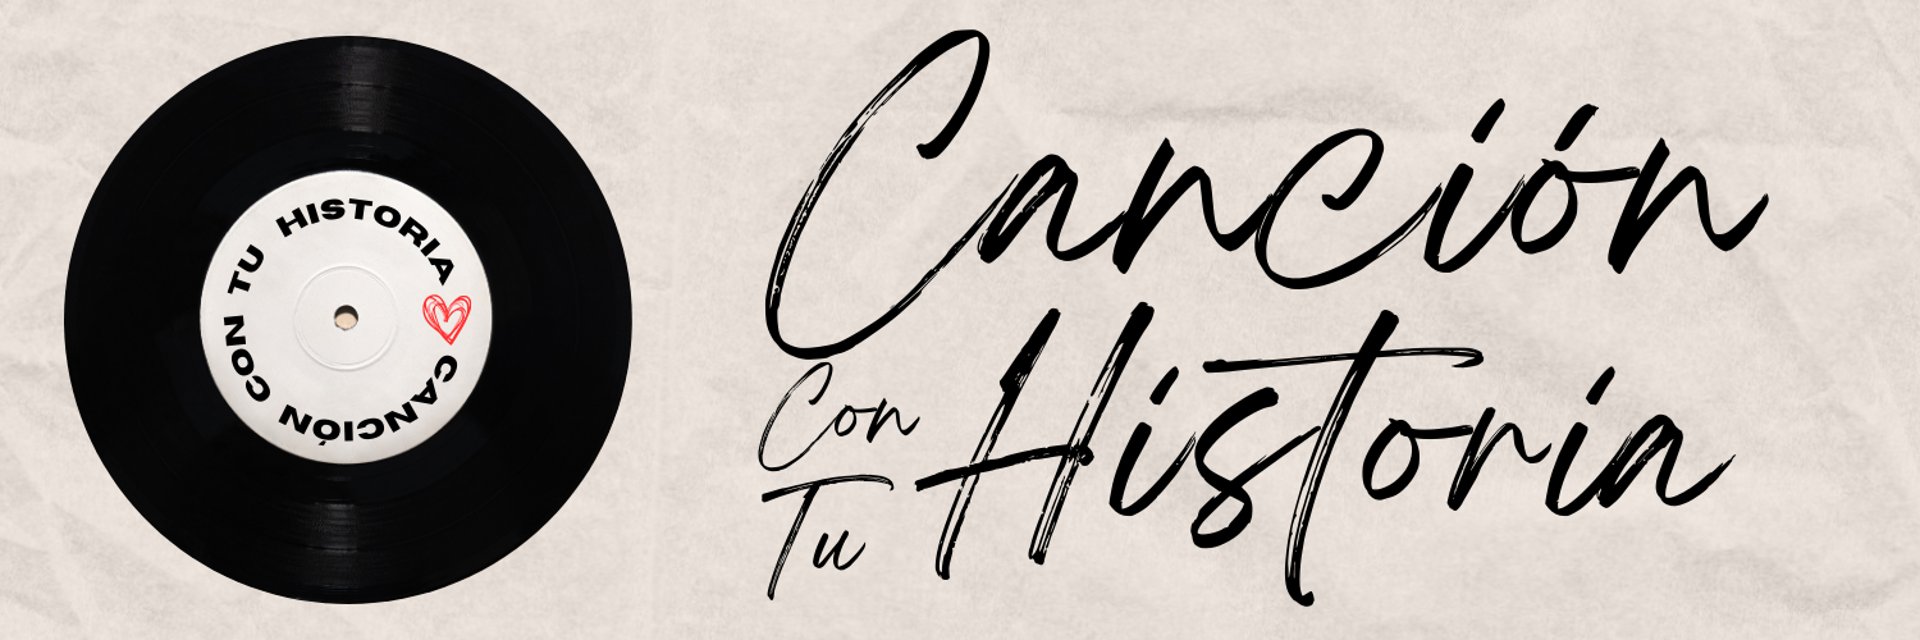 CANCIÓN CON TU HISTORIA
Canción
Con
Tu Historia